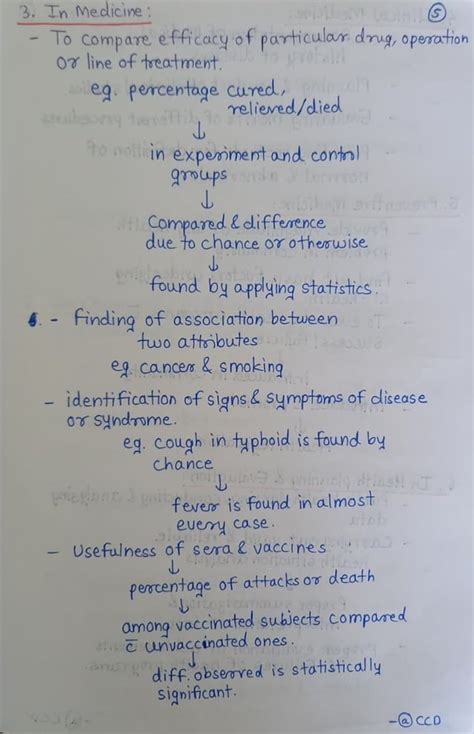 3. In Medicine:
5
- To compare efficacy of particular drug, operation
or line of treatment.
eg. percentage cured,
relieved/died
↓
in experiment and control
groups
↓
Compared & difference
due to chance or otherwise
↓
found by applying statistics.
- Finding of association between
two attributes
eg. cancer & smoking
- identification of signs & symptoms of disease
or syndrome.
eg. cough in typhoid is found by
chance
↓
fever is found in almost
every case.
- Usefulness of sera & vaccines
↓
percentage of attacks or death
↓
among vaccinated subjects compared
c̄ unvaccinated ones.
↓
diff. observed is statistically
significant.
-@CCD